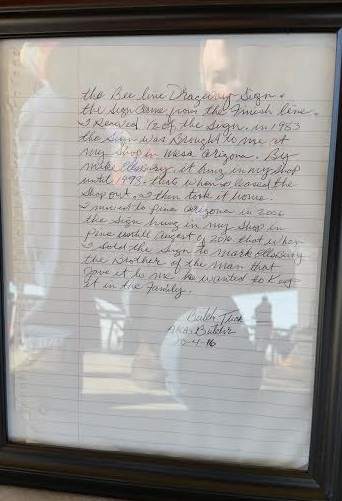 the Bee line Dragway Sign.
the Sign Came from the Finish line.
I Received 1/2 of the Sign. in 1983
the Sign was Brought to me at
my Shop in Mesa Arizona. By
mike it hung in my Shop
until 1998. thats when I leased the
Shop out. I then took it home.
I moved to pine Arizona in 2006
the Sign hung in my Shop in
Pine until August of 2016 that when
I sold the Sign to Mark
the Brother of the Man that
Gave it to me he wanted to Keep
it in the Family.
Butch
AKA. Butch
10-4-16